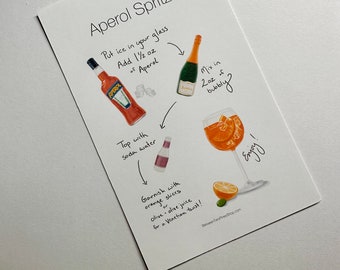 Aperol Spritz
Put ice in your glass
Add 1½ oz
of Aperol
APEROL
Mix in
2oz of
bubbly?
Top with
soda water
Enjoy!
Garnish with
orange slices
or
Olive + olive juice
for a Venetian twist!